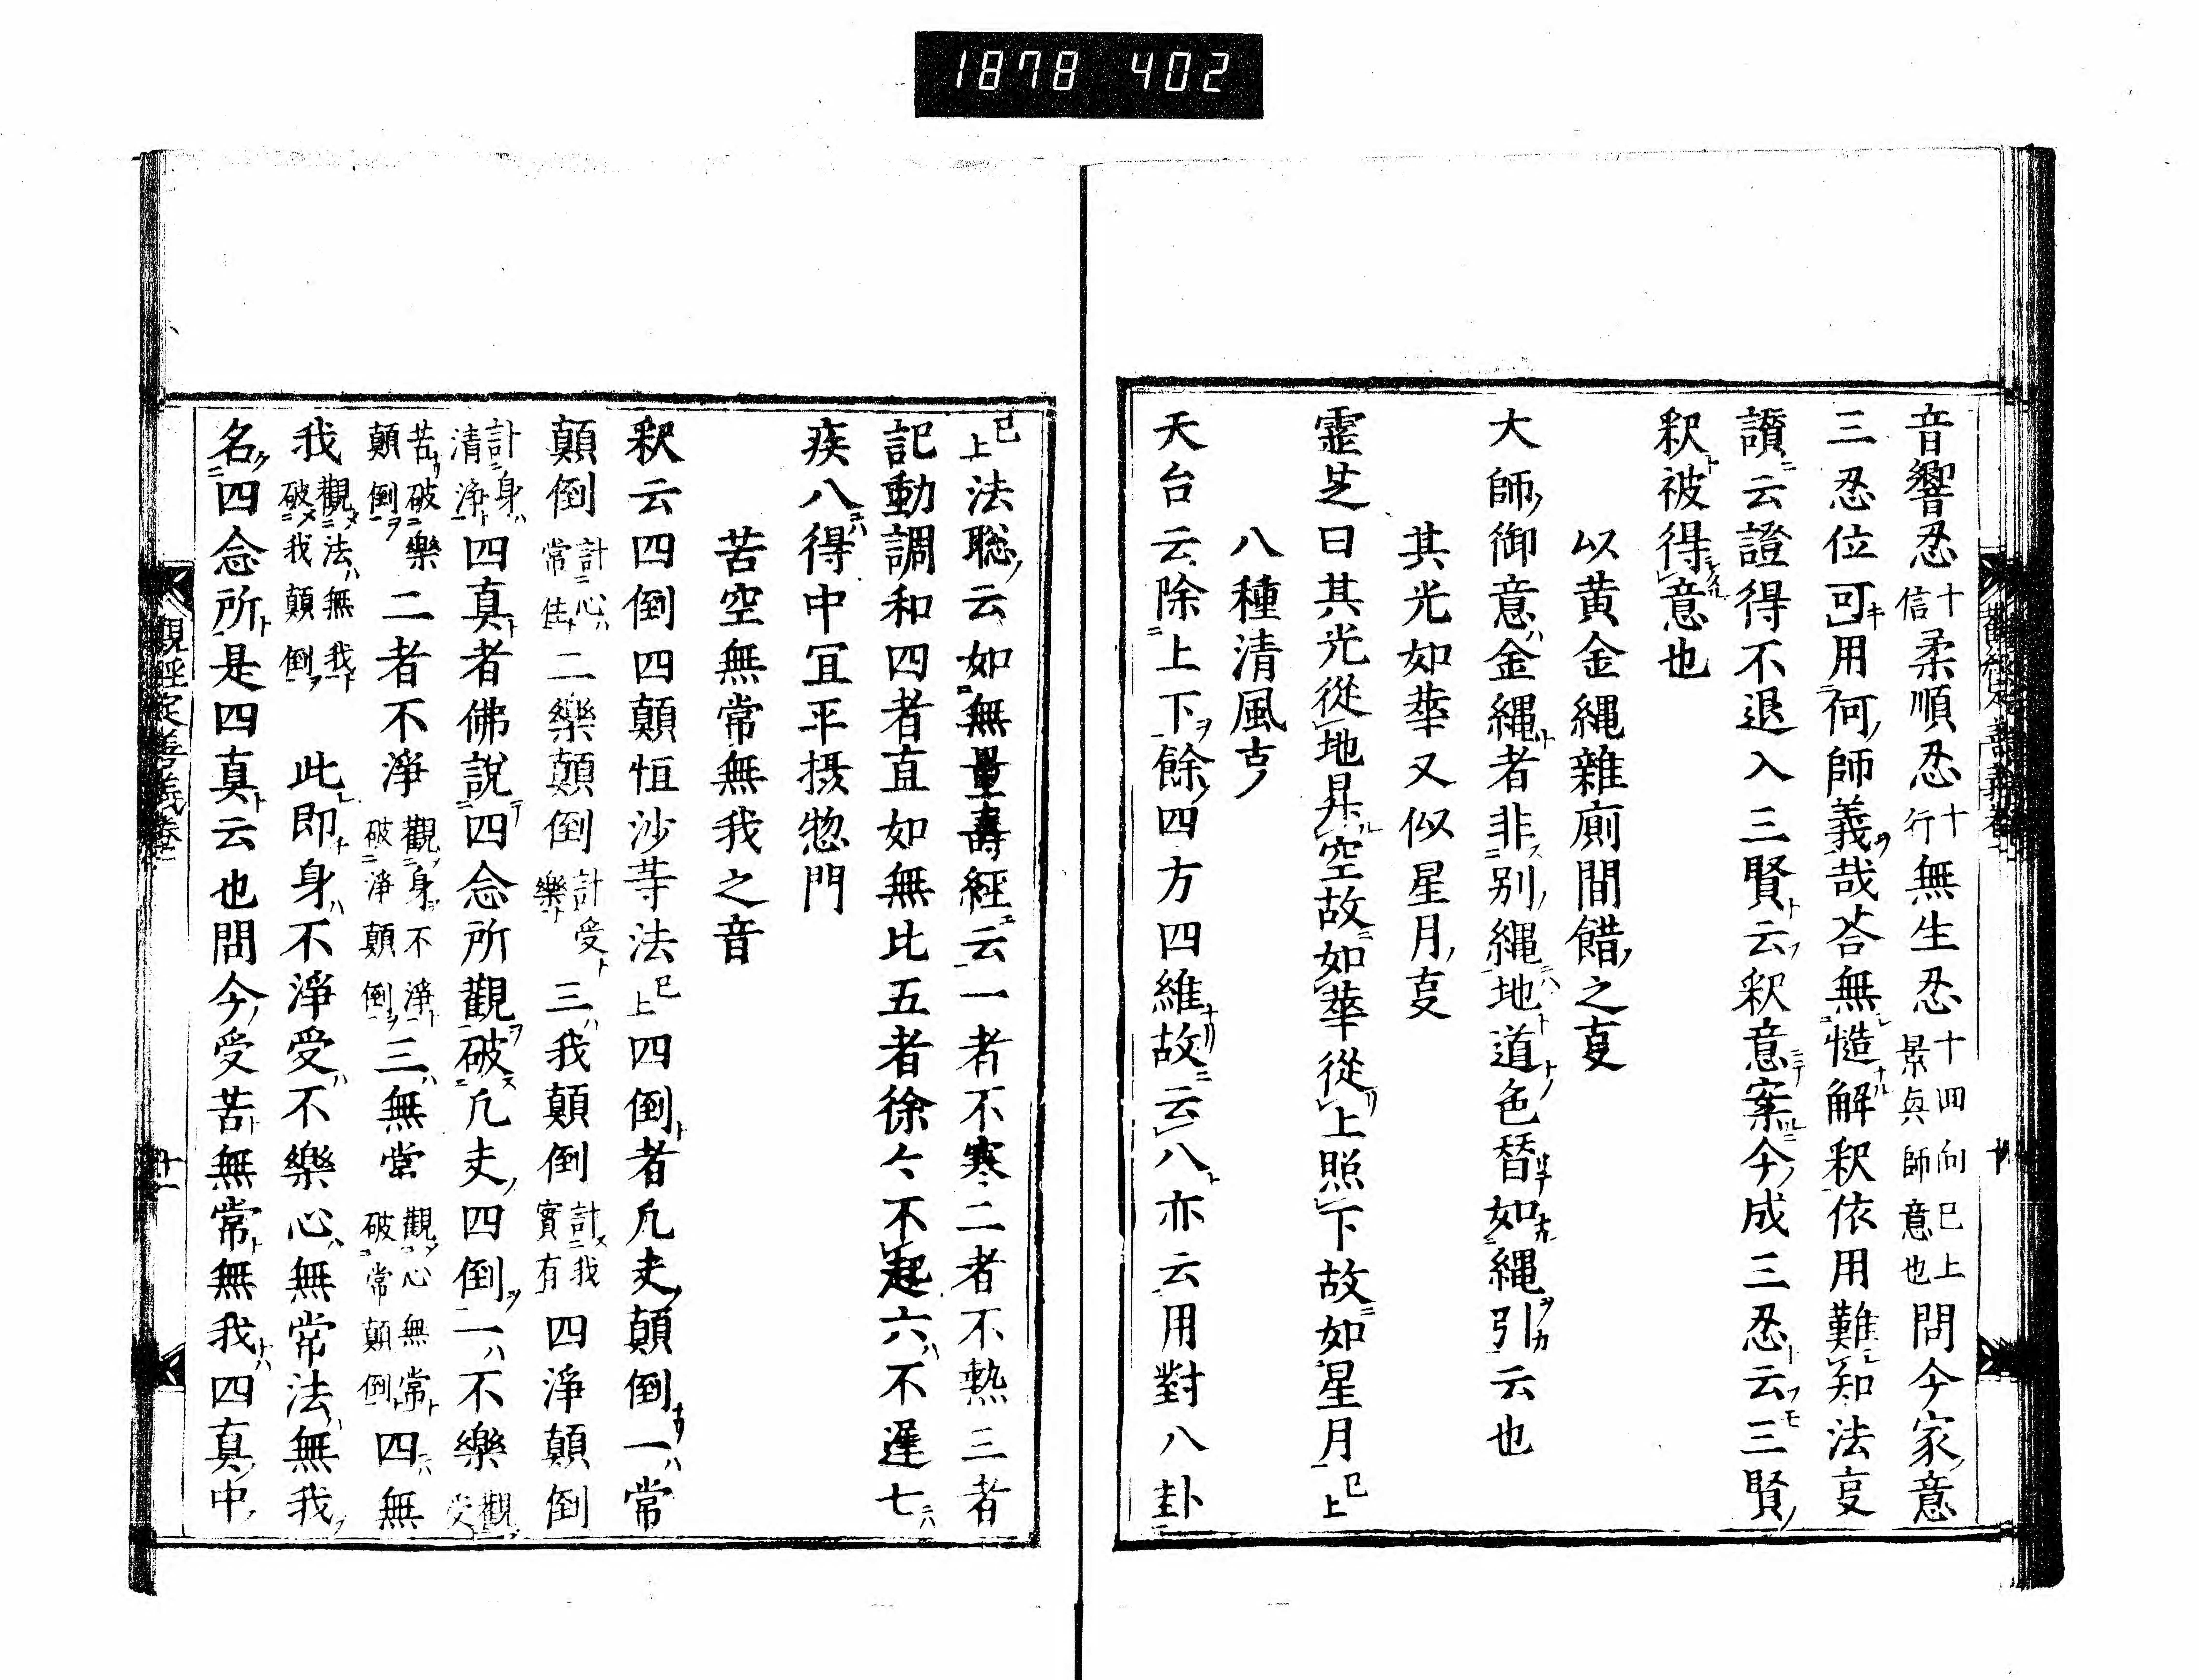 1878 402
音響忍十信柔順忍十行無生忍十回向已上景興師意也問今家意
三忍位可用何師義哉荅無慥解釈依用難知法㕝
讃云證得不退入三賢云釈意案今成三忍云三賢
釈被得意也
以黄金縄雜廁間錯之㕝
大師御意金縄者非別縄地道色替如縄引云也
其光如華又似星月㕝
霊芝曰其光從地昇空故如華從上照下故如星月已上
八種清風㕝
天台云除上下餘四方四維故云八亦云用對八卦
已上法聡云如無量壽經云一者不寒二者不熱三者
記動調和四者直如無比五者徐々不起六不遲七
疾八得中冝平摂惣門
苦空無常無我之音
釈云四倒四顛恒沙䓁法已上四倒者凢夫顛倒一常
顛倒計心常住二樂顛倒計受樂三我顛倒計我實有四淨顛倒
計身清淨四真者佛説四念所觀破凢夫四倒一不樂觀受
苦破樂顛倒二者不淨觀身不淨破淨顛倒三無常觀心無常破常顛倒四無
我觀法無我破我顛倒此即身不淨受不樂心無常法無我
名四念所是四真云也問今受苦無常無我四真中
觀經定善義卷二
十一